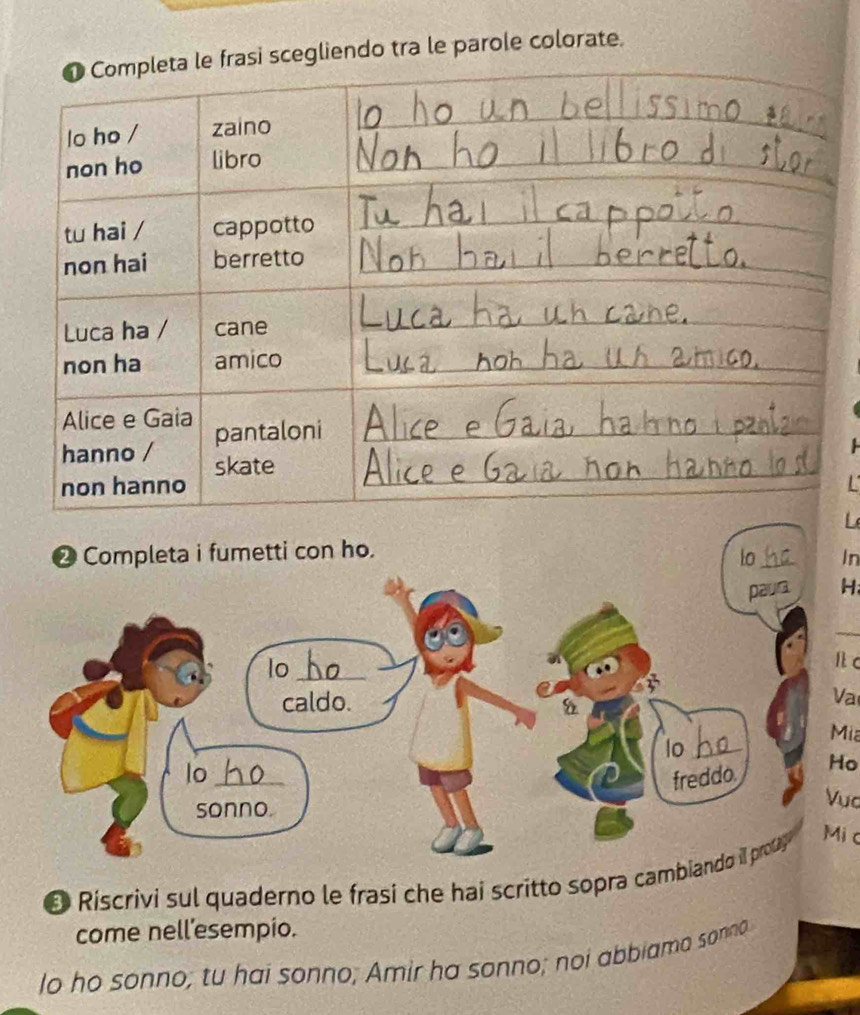 1 Completa le frasi scegliendo tra le parole colorate.
Io ho / zaino Io ho un bellissimo
non ho libro Non ho il libro di stor
tu hai / cappotto Tu hai il cappotto
non hai berretto Non hai il berretto.
Luca ha / cane Luca ha un cane.
non ha amico Luca non ha un amico.
Alice e Gaia pantaloni Alice e Gaia hanno i pantal
hanno /
non hanno skate Alice e Gaia non hanno lo sk
2 Completa i fumetti con ho.
Io ho
paura
Io ho
caldo.
Io ho
sonno.
Io ho
freddo.
3 Riscrivi sul quaderno le frasi che hai scritto sopra cambiando il protag
come nell'esempio.
Io ho sonno; tu hai sonno; Amir ha sonno; noi abbiamo sonno
L'
Le
In
Ha
Il c
Va
Mia
Ho
Vuo
Mi c